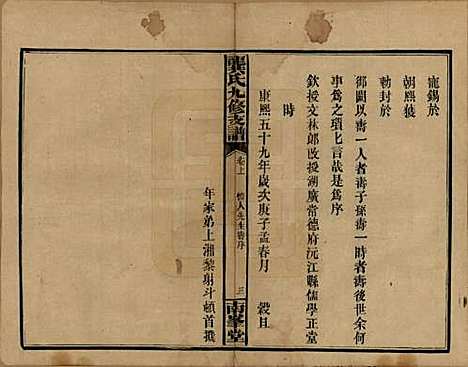 寵錫於
朝熙獲
勅封於
御闕以壽一人者壽子孫壽一時者壽後世余何
事爲之瑣乜言哉是爲序
欽授文林郎改授湖廣常德府沅江縣儒學正堂
時
康熙五十九年歲次庚子孟春月 穀旦
年家弟上湘黎射斗頓首撰
龔氏九修支譜 卷上 人先生壽序 三 南峯堂